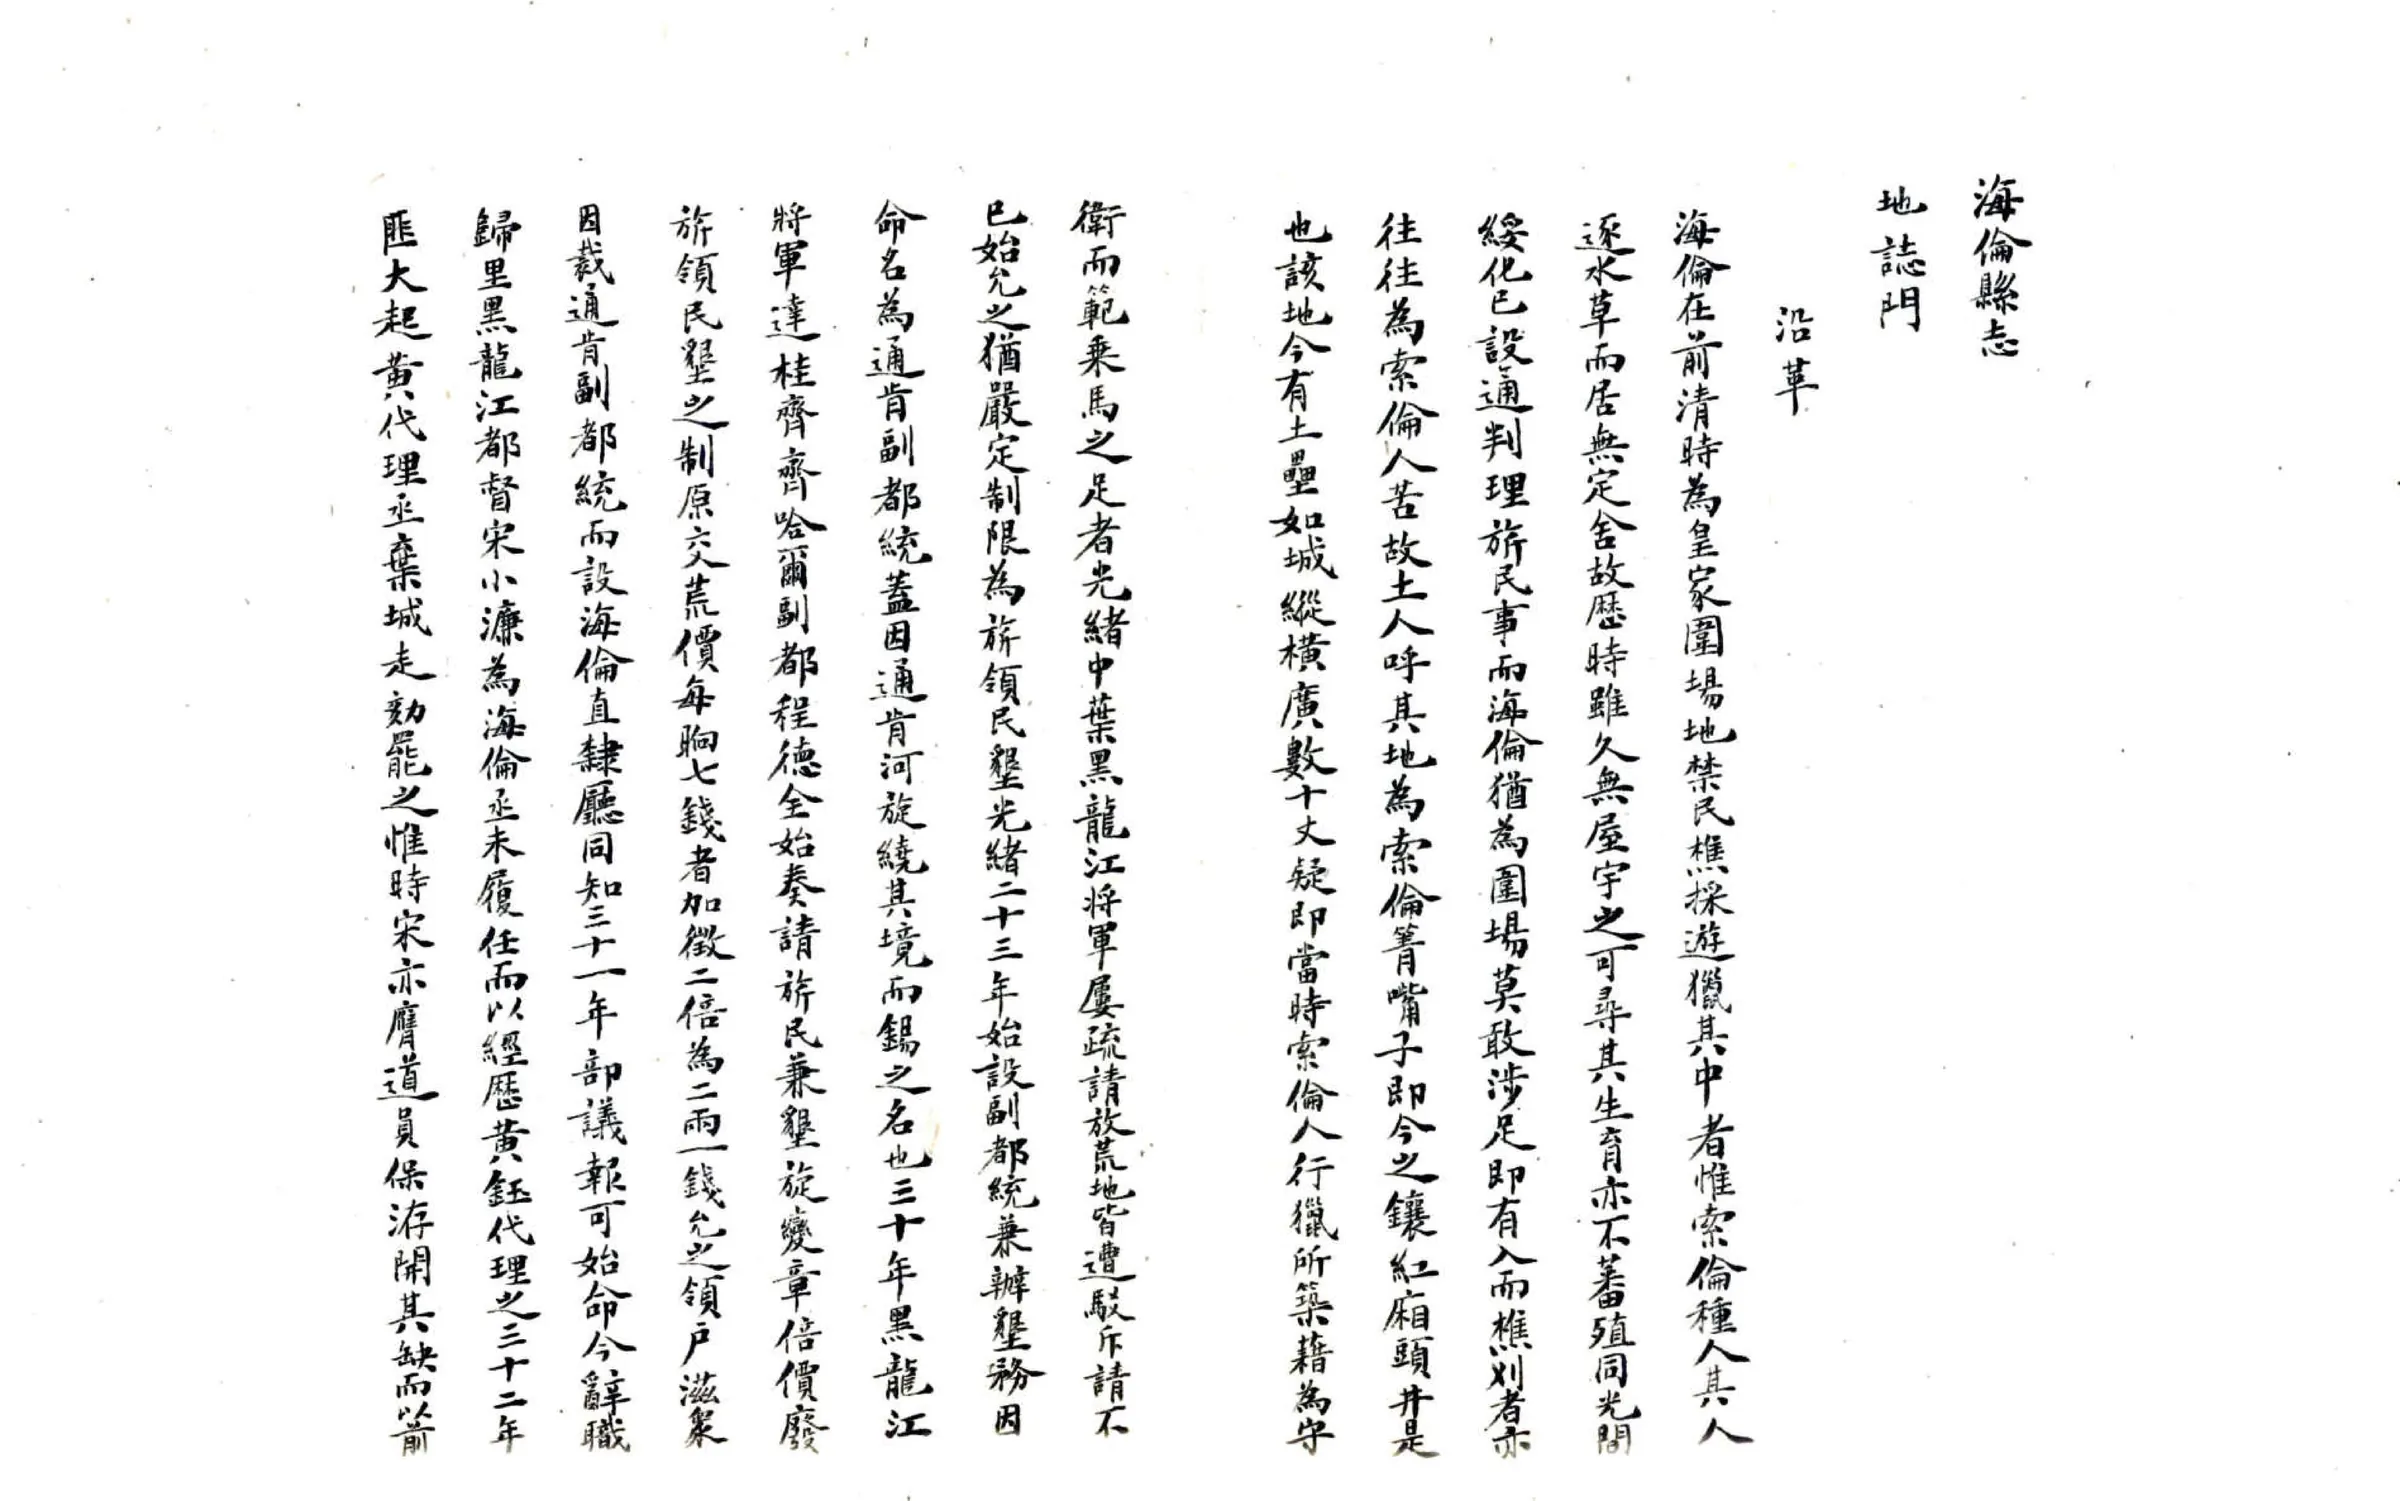 海倫縣志
地誌門
沿革
海倫在前清時為皇家圍場地禁民樵採遊獵其中者惟索倫種人其人
逐水草而居無定舍故歷時雖久無屋宇之可尋其生育亦不蕃殖同光間
綏化已設通判理旂民事而海倫猶為圍場莫敢涉足即有入而樵刈者亦
往往為索倫人苦故土人呼其地為索倫箐嘴子即今之鑲紅廂頭井是
也該地今有土壘如城縱橫廣數十丈疑即當時索倫人行獵所築藉為守
衛而範乘馬之足者光緒中葉黑龍江將軍屢疏請放荒地皆遭駁斥請不
已始允之猶嚴定制限為旂領民墾光緒二十三年始設副都統兼辦墾務因
命名為通肯副都統蓋因通肯河旋繞其境而錫之名也三十年黑龍江
將軍達桂齊齊哈爾副都程德全始奏請旂民兼墾旋變章倍價廢
旂領民墾之制原交荒價每晌七錢者加徵二倍為二兩一錢允之領戶滋眾
因裁通肯副都統而設海倫直隸廳同知三十一年部議報可始命今辭職
歸里黑龍江都督宋小濂為海倫丞未履任而以經歷黃鈺代理之三十二年
匪大起黃代理丞棄城走劾罷之惟時宋亦膺道員保洊開其缺而以前